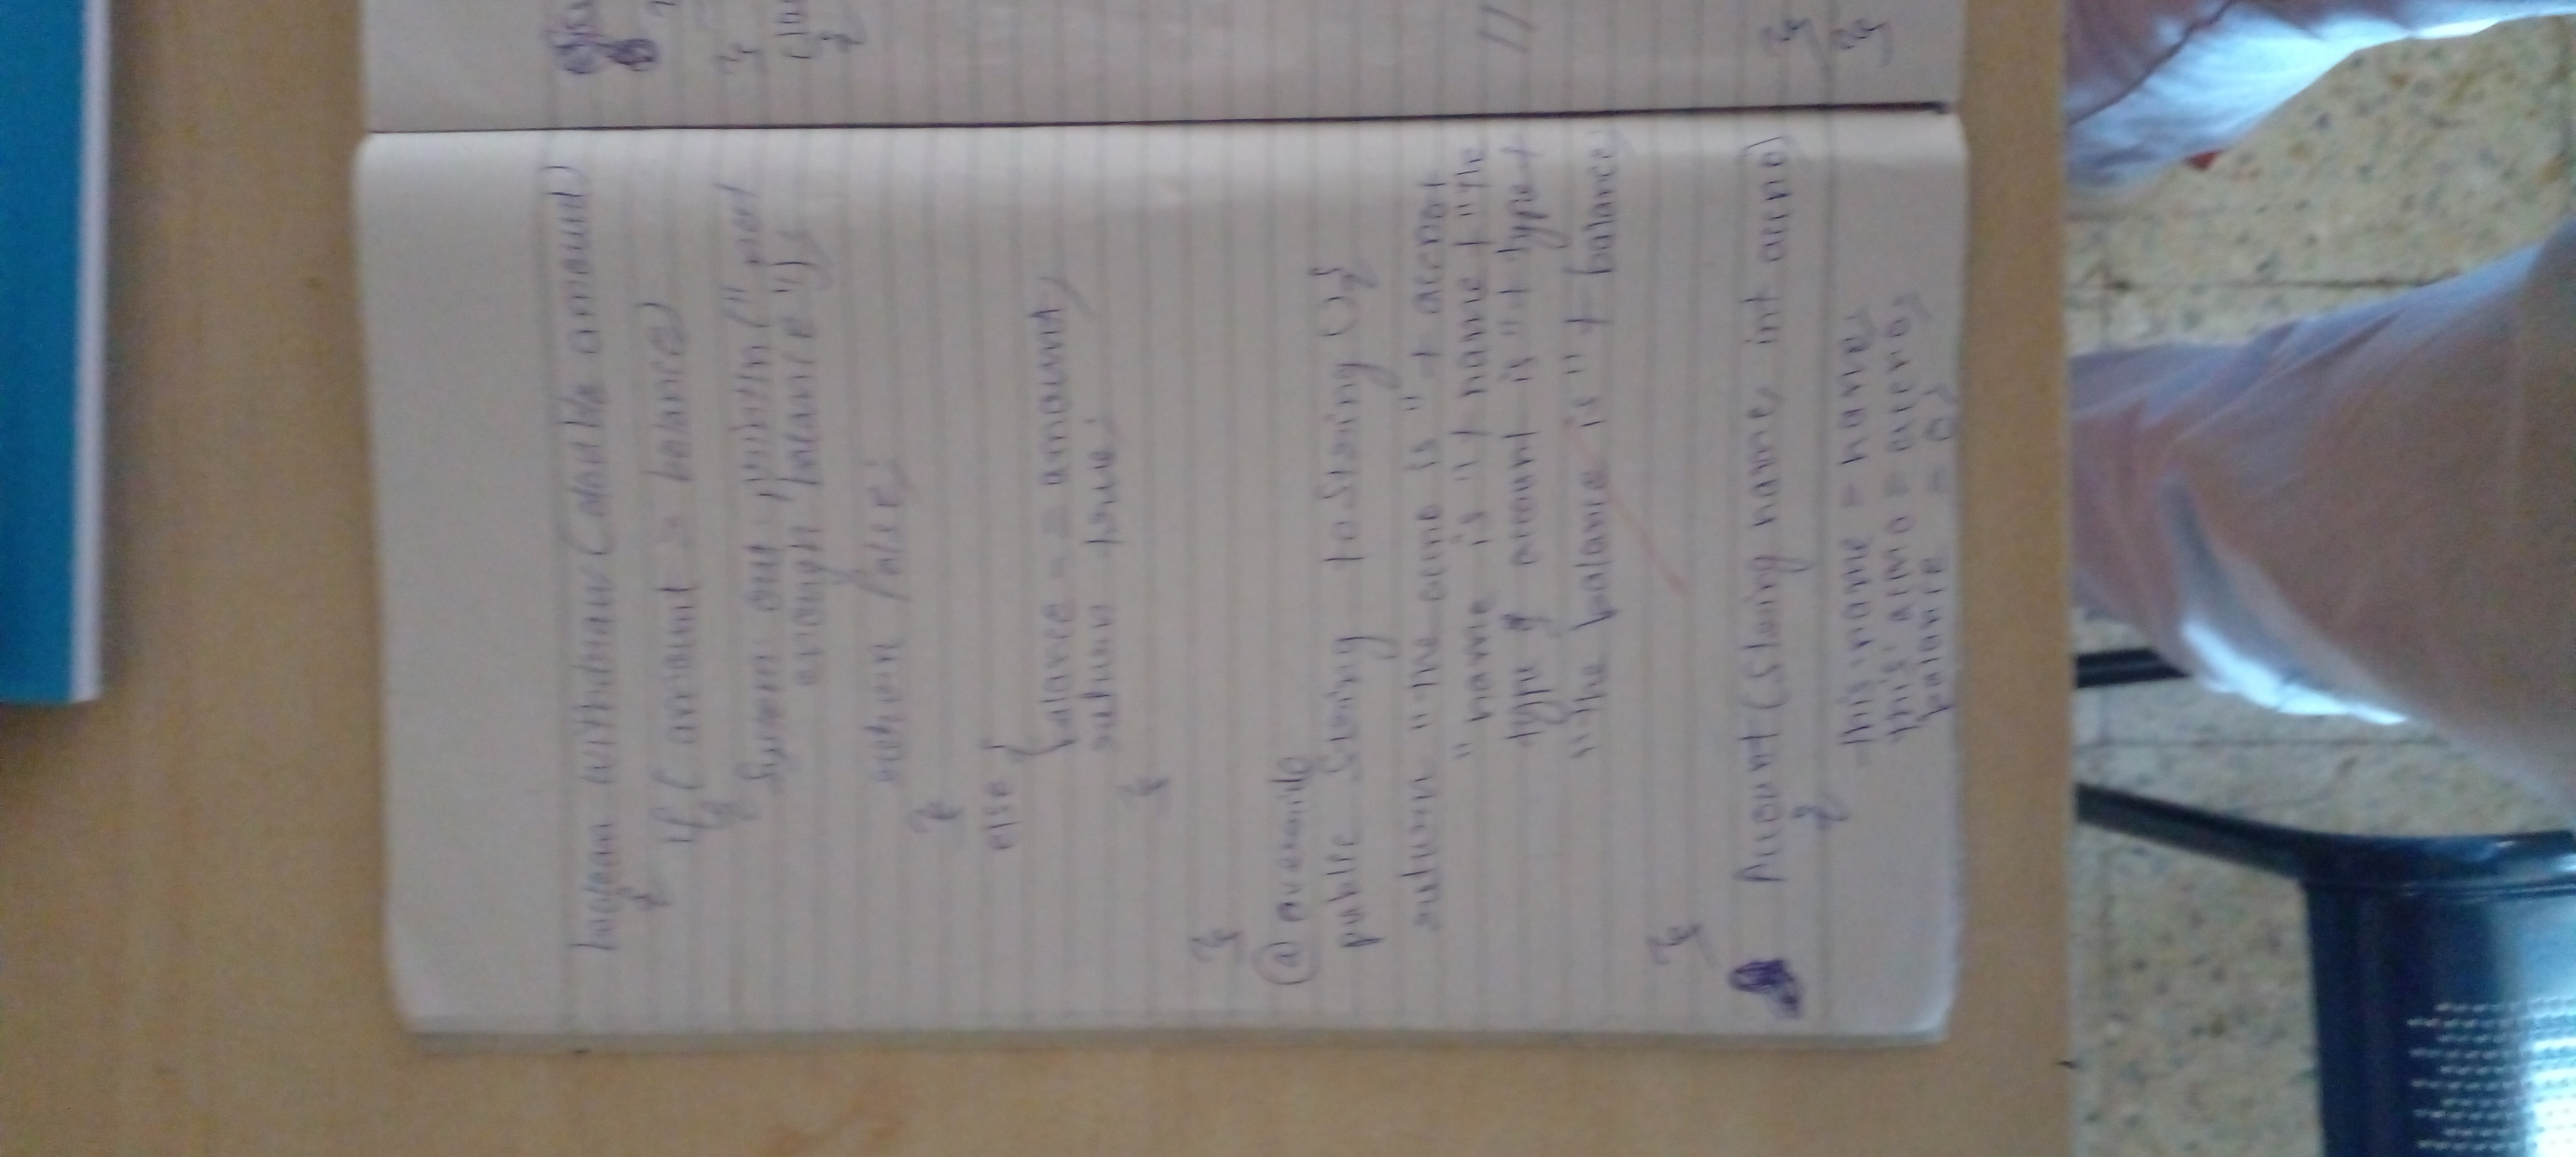 boolean withdraw(double amount)
{
if( amount > balance)
{
System.out.println("not
enough balance");
return false;
}
else {
balance -= amount;
return true;
}
}
@override
public String toString(){
return "the acc no is" + accno+
"name is"+ name+"the
type of account is"+ type+
"the balance is"+ balance;
}
Account(String name, int accno)
{
this.name = name;
this.accno = accno;
balance = 0;